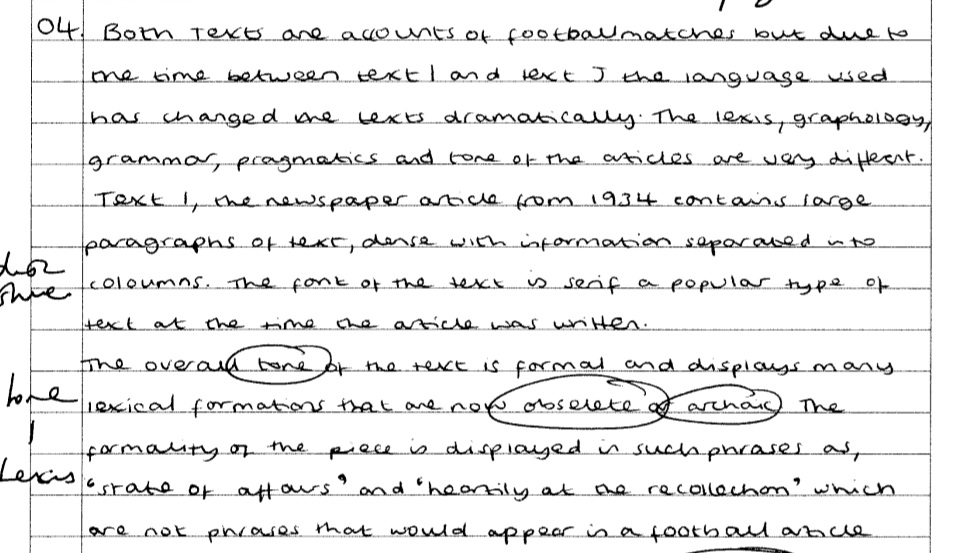 04. Both Texts are accounts of football matches but due to
the time between text 1 and text J the language used
has changed the texts dramatically. The lexis, graphology,
grammar, pragmatics and tone of the articles are very different.
Text 1, the newspaper article from 1934 contains large
paragraphs of text, dense with information separated into
coloumns. The font of the text is serif a popular type of
text at the time the article was written.
The overall tone of the text is formal and displays many
tone
lexical formations that are now obselete or archaic The
formality of the piece is displayed in such phrases as,
Lexis
'state of affairs' and 'heartily at the recollection' which
are not phrases that would appear in a football article